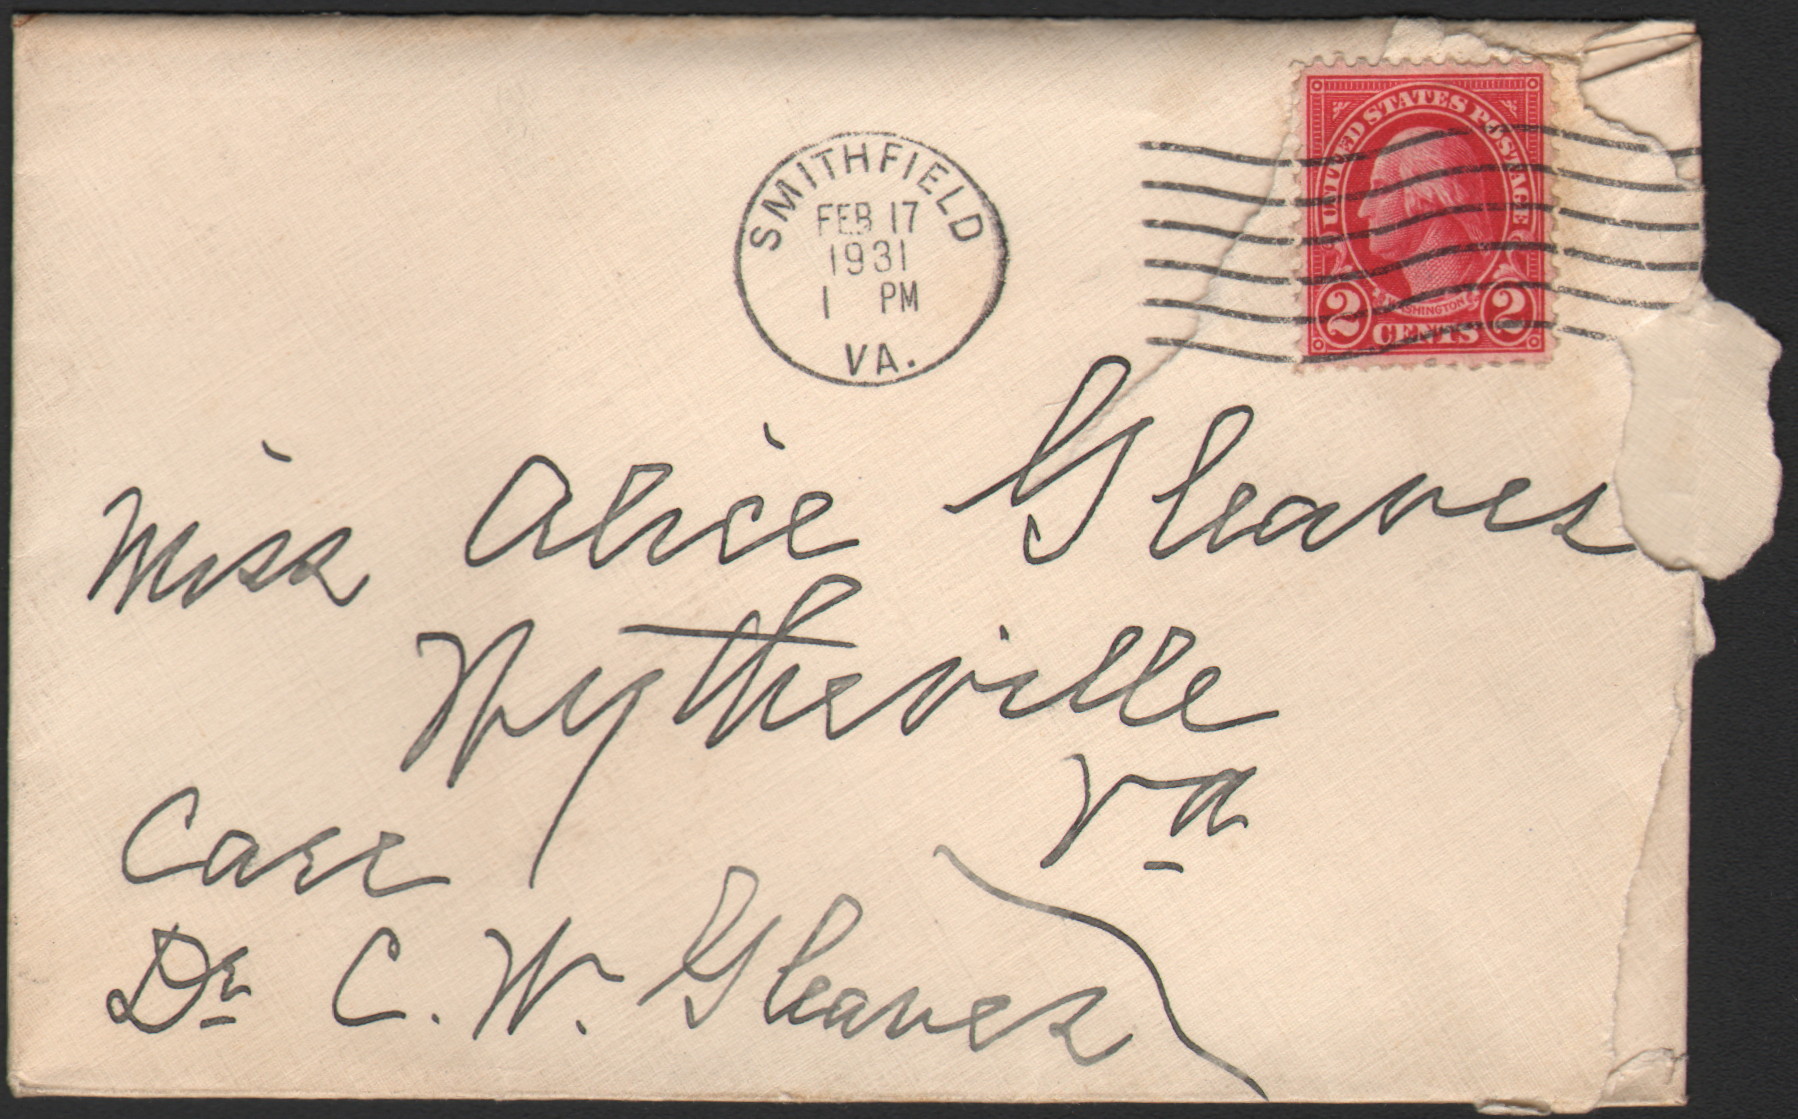 SMITHFIELD
FEB 17
1931
1 PM
VA.
UNITED STATES POSTAGE
WASHINGTON
2 CENTS 2
Miss Alice Gleaves
Wytheville
Va
Care
Dr C. W. Gleaves